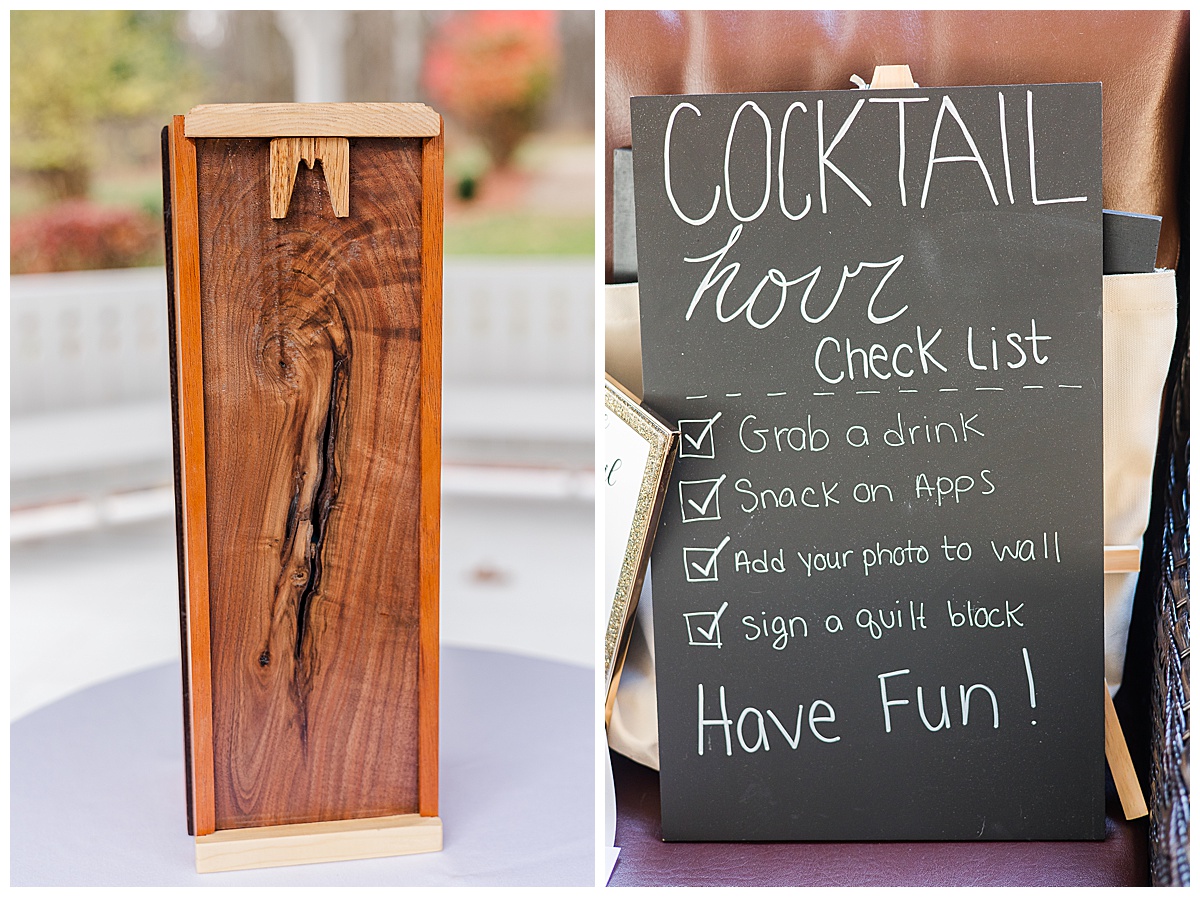 COCKTAIL
hour
Check List
Grab a drink
Snack on Apps
Add your photo to wall
sign a quilt block
Have Fun!